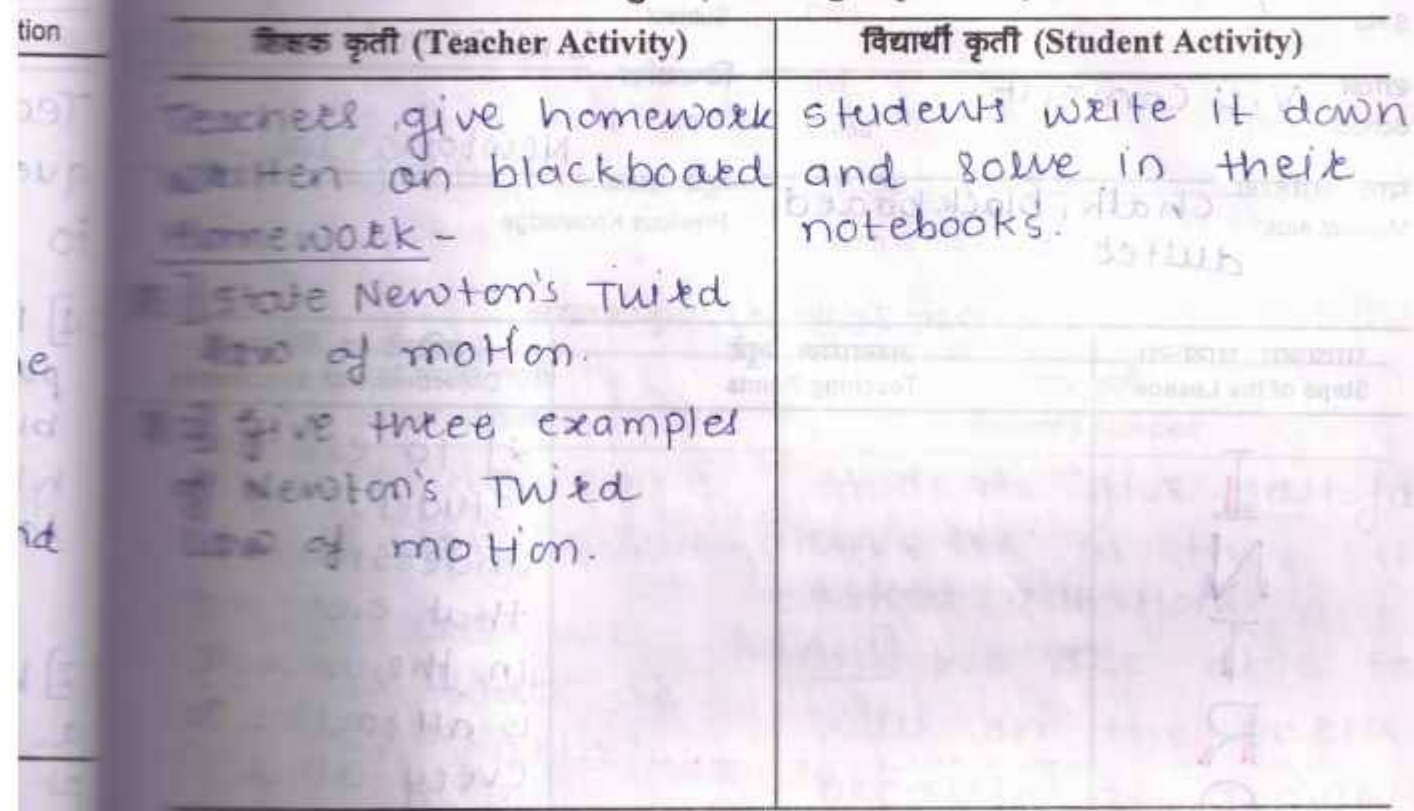 tion
शिक्षक कृती (Teacher Activity)
विद्यार्थी कृती (Student Activity)
Teachers give homework
written on blackboard
Homework -
1] State Newton's Third
law of motion.
2] Give three examples
of Newton's Third
Law of motion.
students write it down
and solve in their
notebooks.